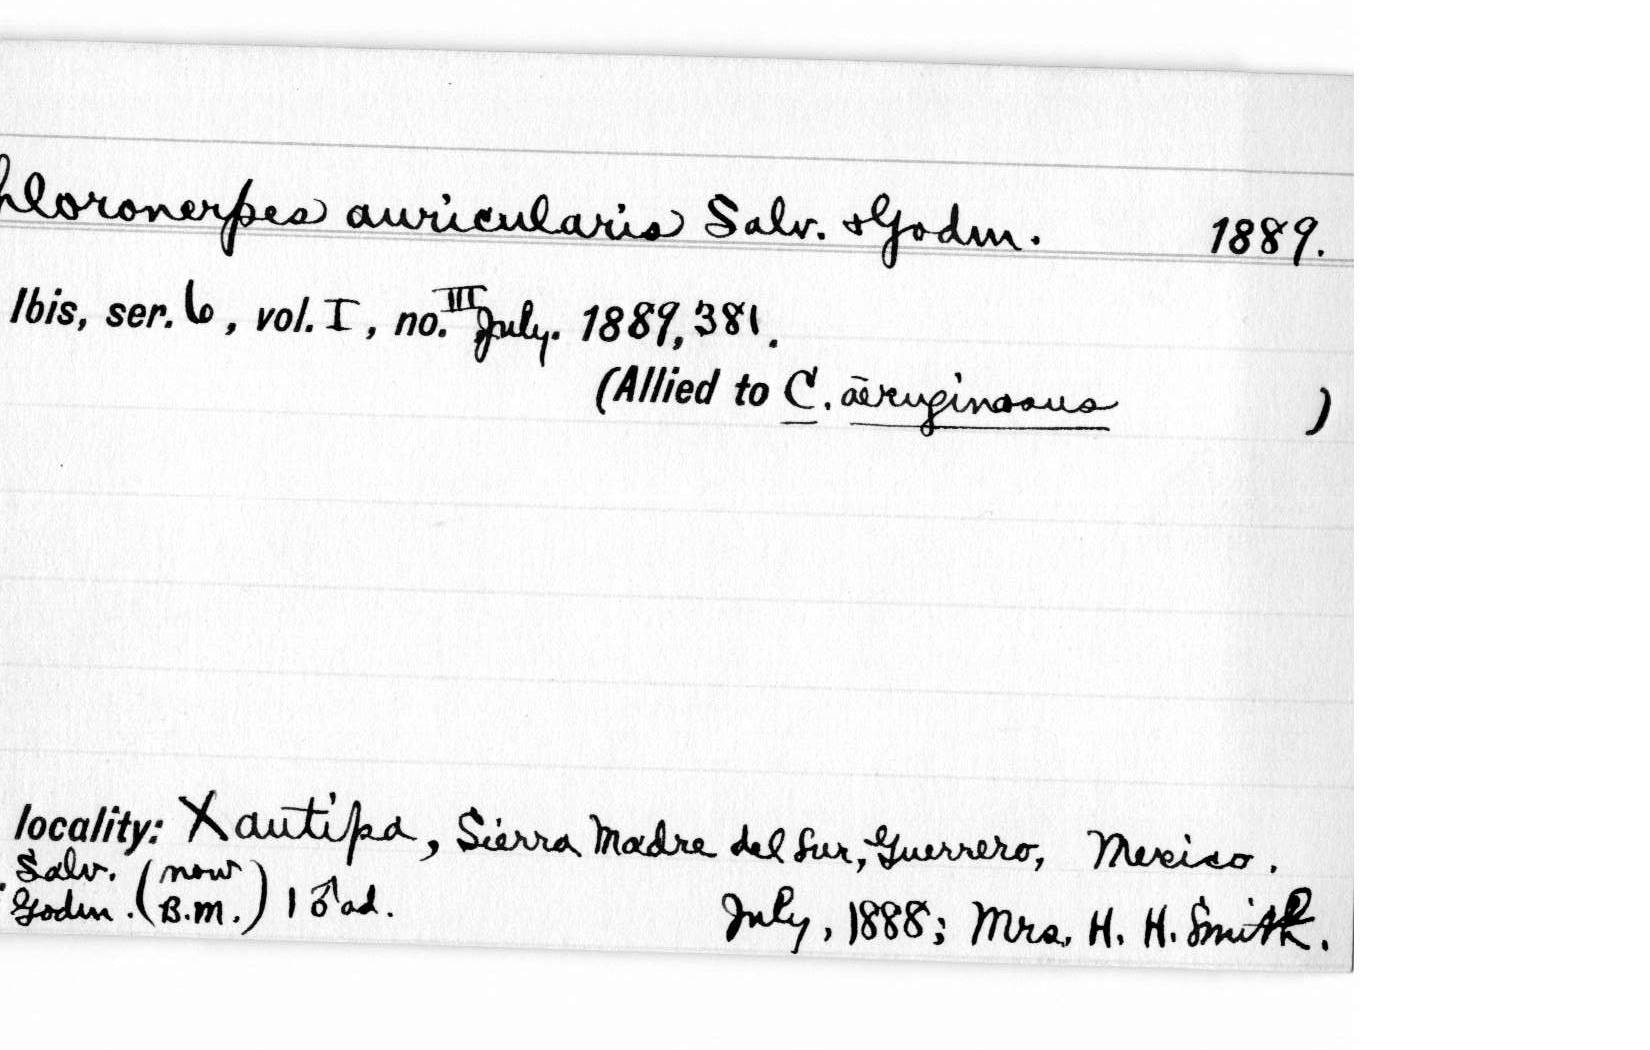 hloronerpes auricularis Salv. & Godm. 1889.
Ibis, ser. 6, vol. I, no. III July. 1889, 381.
(Allied to C. aëruginosus )
locality: Xautipa, Sierra Madre del Sur, Guerrero, Mexico.
Salv. (now
Godm. B.M.) 1 ♂ ad. July, 1888; Mrs. H. H. Smith.